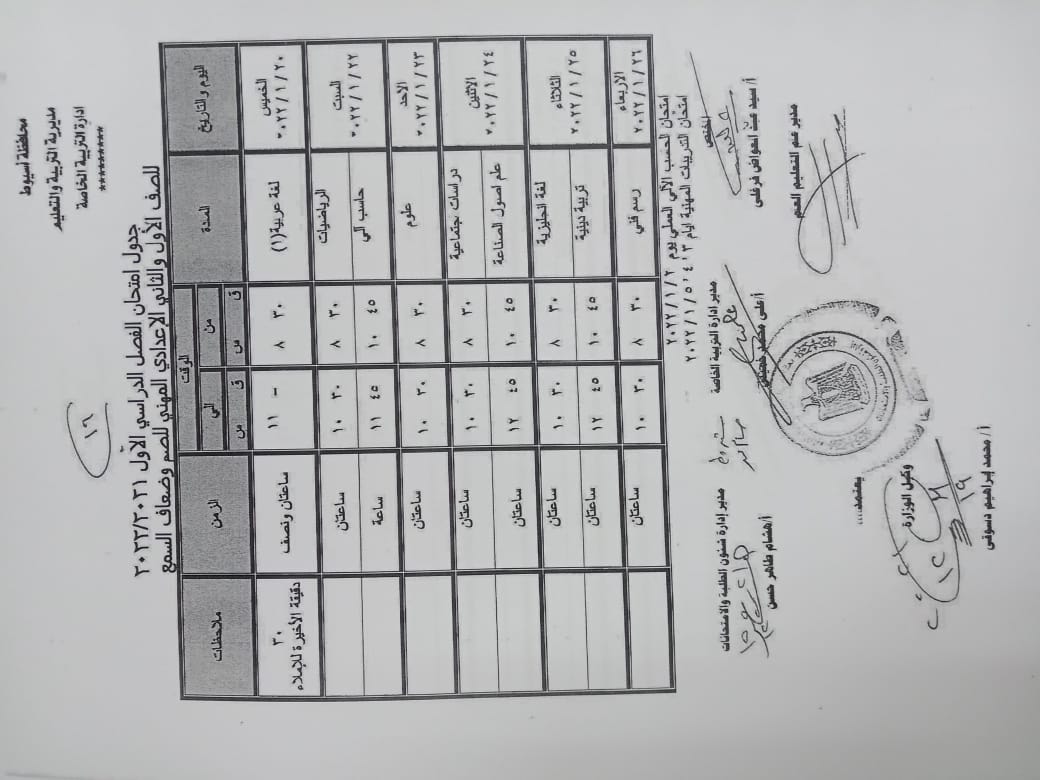 محافظة أسيوط
مديرية التربية والتعليم
إدارة التربية الخاصة
*********
١٦
جدول امتحان الفصل الدراسي الأول ٢٠٢٢/٢٠٢١
للصف الأول والثاني الإعدادي المهني للصم وضعاف السمع
اليوم والتاريخ المادة الوقت الزمن ملاحظات
من إلى
ق س ق س
الخميس ٢٠٢٢/١/٢٠ لغة عربية(١) ٣٠ ٨ - ١١ ساعتان ونصف ٣٠ دقيقة الأخيرة للإملاء
السبت ٢٠٢٢/١/٢٢ الرياضيات ٣٠ ٨ ٣٠ ١٠ ساعتان
حاسب آلي ٤٥ ١٠ ٤٥ ١١ ساعة
الأحد ٢٠٢٢/١/٢٣ علوم ٣٠ ٨ ٣٠ ١٠ ساعتان
الاثنين ٢٠٢٢/١/٢٤ دراسات اجتماعية ٣٠ ٨ ٣٠ ١٠ ساعتان
علم اصول الصناعة ٤٥ ١٠ ٤٥ ١٢ ساعتان
الثلاثاء ٢٠٢٢/١/٢٥ لغة انجليزية ٣٠ ٨ ٣٠ ١٠ ساعتان
تربية دينية ٤٥ ١٠ ٤٥ ١٢ ساعتان
الاربعاء ٢٠٢٢/١/٢٦ رسم فني ٣٠ ٨ ٣٠ ١٠ ساعتان
امتحان الحسب الآلي العملي يوم ٢٠٢٢/١/٢
امتحان التدريبات المهنية ايام ٣، ٤، ٢٠٢٢/١/٥
المختص
أ/ سيد عبد العواض فرغلي
مدير إدارة التربية الخاصة
أ/علي محمد
مدير إدارة شئون الطلبة والامتحانات
أ/هشام طاهر حسن
مدير عام التعليم العام
يعتمد،،،،
وكيل الوزارة
أ/ محمد إبراهيم دسوقي